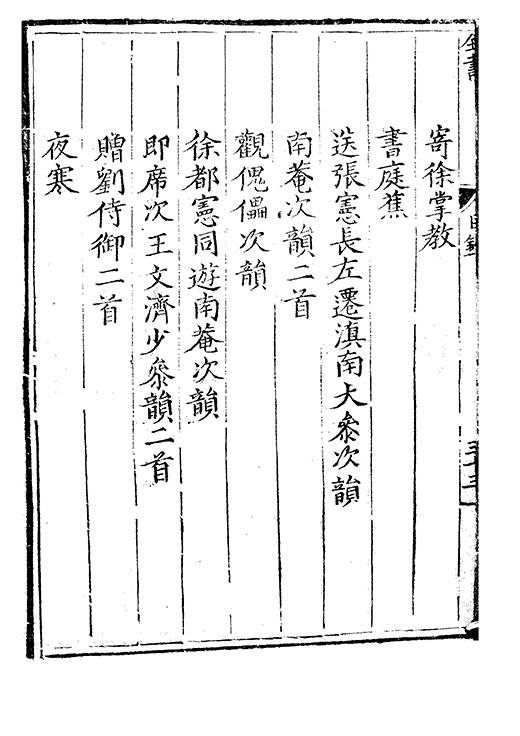 寄徐掌教
書庭蕉
送張憲長左遷滇南大叅次韻
南菴次韻二首
觀傀儡次韻
徐都憲同遊南菴次韻
即席次王文濟少叅韻二首
贈劉侍御二首
夜寒